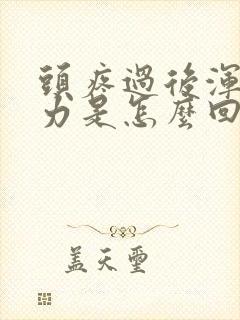 頭疼過後渾
力是怎麼回
蓋天璽